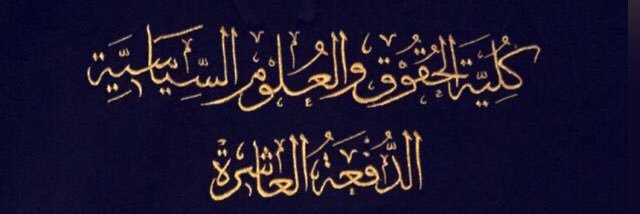 كُلِيَّة الحُقُوْق والعُلُوْم السِّيَاسِيَّة
الدُّفْعَةُ العَاشِرَة